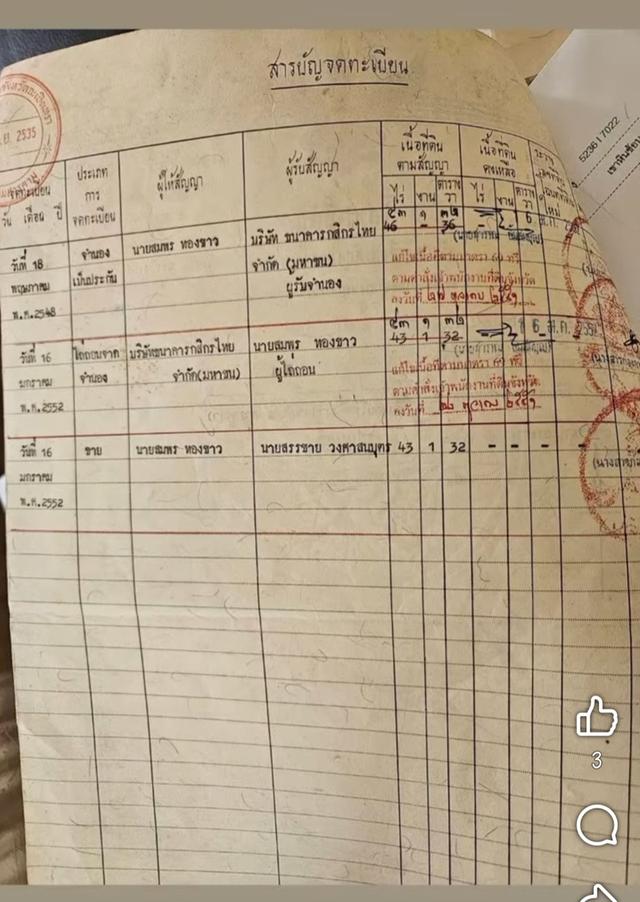 สารบัญจดทะเบียน
2535
523617022
จดทะเบียน
วัน เดือน ปี
ประเภท
การ
จดทะเบียน
ผู้ให้สัญญา
ผู้รับสัญญา
เนื้อที่ดิน
ตามสัญญา
ไร่ งาน ตาราง
วา
เนื้อที่ดิน
คงเหลือ
ไร่ งาน ตาราง
วา
ใหม่
๔๓ ๑ ๓๒
วันที่ 18 จำนอง นายสมพร ทองขาว บริษัท ธนาคารกสิกรไทย 46 - 36
พฤษภาคม เป็นประกัน จำกัด (มหาชน)
พ.ศ.2548 ผู้รับจำนอง
แก้ไขเนื้อที่ตามมาตรา
ตามคำสั่งเจ้าพนักงานที่ดินจังหวัด
ลงวันที่ ๒๗ ตุลาคม ๒๕๕๑
๔๓ ๑ ๓๒
วันที่ 16 ไถ่ถอนจาก บริษัทธนาคารกสิกรไทย นายสมพร ทองขาว 43 1 32
มกราคม จำนอง จำกัด(มหาชน) ผู้ไถ่ถอน
พ.ศ.2552
แก้ไขเนื้อที่ตามมาตรา
ตามคำสั่งเจ้าพนักงานที่ดินจังหวัด
ลงวันที่
วันที่ 16 ขาย นายสมพร ทองขาว นายสรรชาย วงศาสนบุตร 43 1 32 - - - -
มกราคม
พ.ศ.2552
3